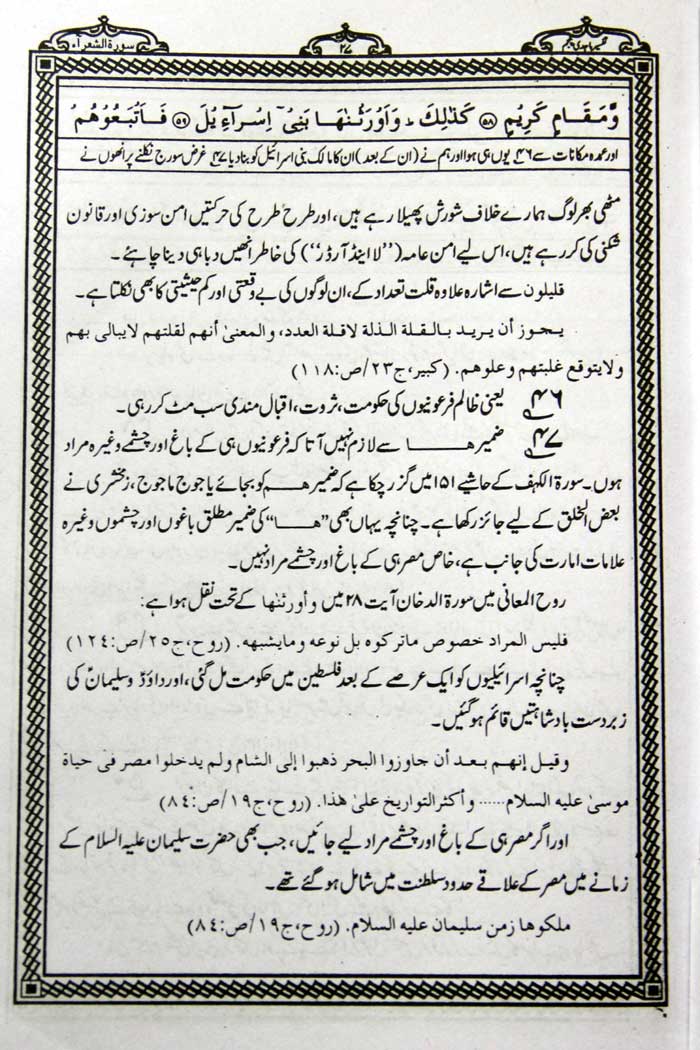 تفسیر ماجدی پنجم ۲۷ سورة الشعرآء
وَّمَقَامٍ كَرِيْمٍ ۝۵۸ كَذٰلِكَ ؕ وَاَوْرَثْنٰهَا بَنِیْۤ اِسْرَآءِيْلَ ۝۵۹ فَاَتْبَعُوْهُمْ
اور عمدہ مکانات سے ۴۶ یوں ہی ہوا اور ہم نے (ان کے بعد) ان کا مالک بنی اسرائیل کو بنا دیا ۴۷ غرض سورج نکلنے پر انھوں نے
مٹھی بھر لوگ ہمارے خلاف شورش پھیلا رہے ہیں، اور طرح طرح کی حرکتیں امن سوزی اور قانون
شکنی کی کر رہے ہیں، اس لیے امن عامہ (’’لا اینڈ آرڈر‘‘) کی خاطر انھیں دبا ہی دینا چاہئے۔
قلیلون سے اشارہ علاوہ قلت تعداد کے، ان لوگوں کی بے وقعتی اور کم حیثیتی کا بھی نکلتا ہے۔
يجوز أن يريد بالقلة الذلة لاقلة العدد، والمعنىٰ أنهم لقلتهم لايبالى بهم
ولايتوقع غلبتهم وعلوهم. (كبير، ج۲۳/ص:۱۱۸)
۴۶ یعنی ظالم فرعونیوں کی حکومت، ثروت، اقبال مندی سب مٹ کر رہی۔
۴۷ ضمیر ھــا سے لازم نہیں آتا کہ فرعونیوں ہی کے باغ اور چشمے وغیرہ مراد
ہوں۔ سورۃ الکہف کے حاشیے ۱۵۱ میں گزر چکا ہے کہ ضمیر ھم کو بجائے یاجوج ماجوج، زمخشری نے
بعض الخلق کے لیے جائز رکھا ہے۔ چنانچہ یہاں بھی ’’ھــا‘‘ کی ضمیر مطلق باغوں اور چشموں وغیرہ
علامات امارت کی جانب ہے، خاص مصر ہی کے باغ اور چشمے مراد نہیں۔
روح المعانی میں سورۃ الدخان آیت ۲۸ میں وأورثنٰها کے تحت نقل ہوا ہے:
فليس المراد خصوص ماتركوه بل نوعه ومايشبهه. (روح، ج۲۵/ص:۱۲۴)
چنانچہ اسرائیلیوں کو ایک عرصے کے بعد فلسطین میں حکومت مل گئی، اور داؤدؑ و سلیمانؑ کی
زبردست بادشاہتیں قائم ہوگئیں۔
وقيل إنهم بعد أن جاوزوا البحر ذهبوا إلى الشام ولم يدخلوا مصر فى حياة
موسىٰ عليه السلام...... وأكثر التواريخ علىٰ هٰذا. (روح، ج۱۹/ص:۸۴)
اور اگر مصر ہی کے باغ اور چشمے مراد لیے جائیں، جب بھی حضرت سلیمان علیہ السلام کے
زمانے میں مصر کے علاقے حدود سلطنت میں شامل ہوگئے تھے۔
ملكوها زمن سليمان عليه السلام. (روح، ج۱۹/ص:۸۴)